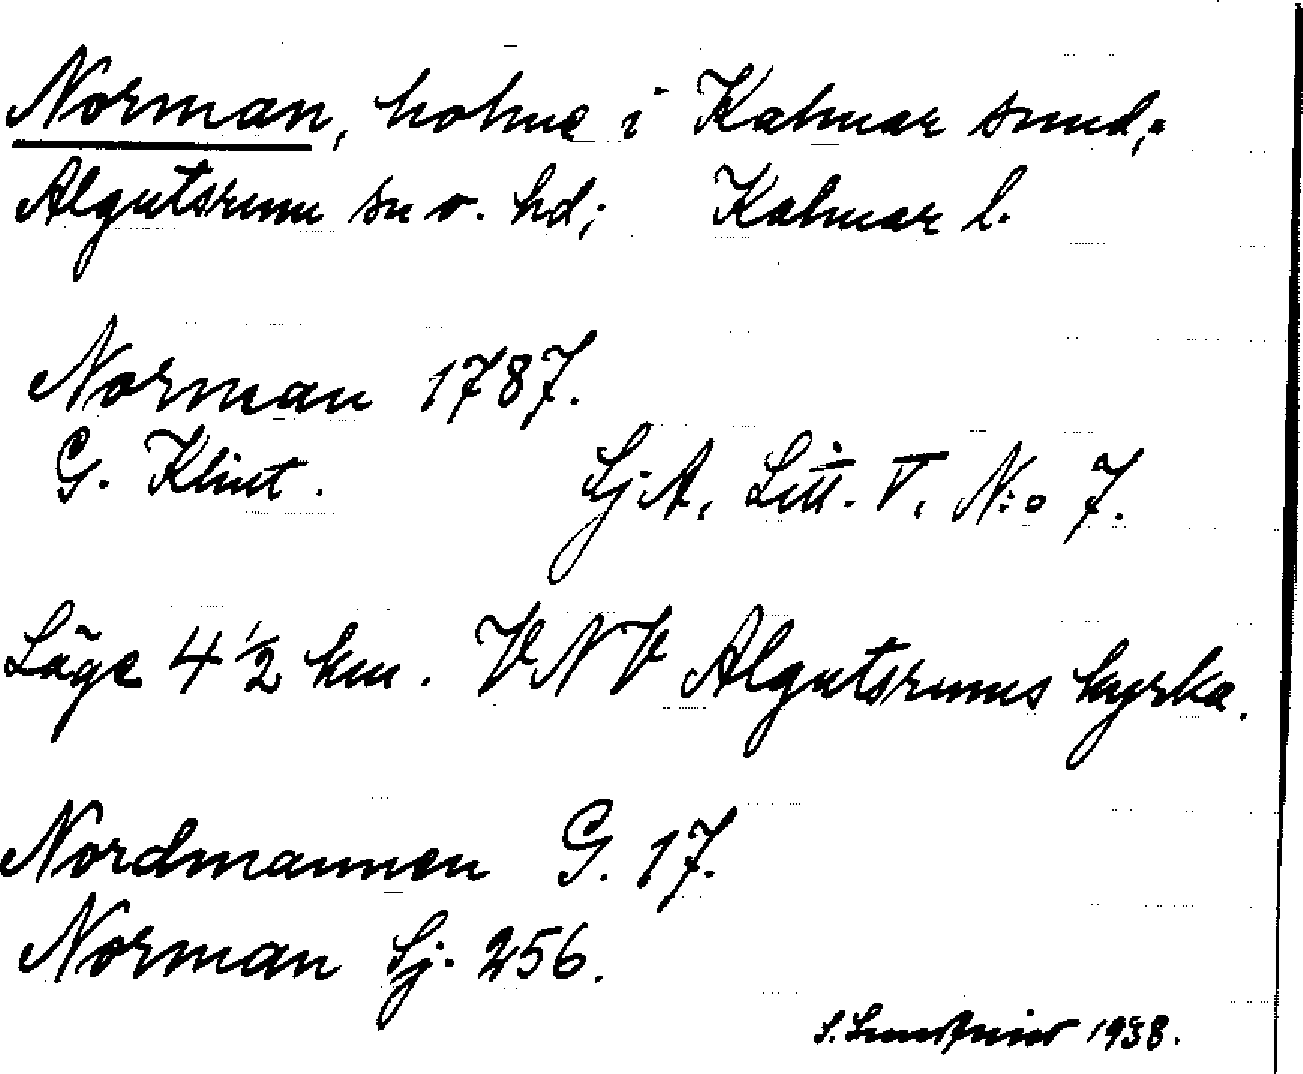 Norman, holme i Kalmar sund;
Algutsrum sn o. hd; Kalmar l.
Norman 1787.
G. Klint. Sj.A. Litt. V. N:o 7.
Läge 4 1/2 km. VNV Algutsrums kyrka.
Nordmannen G. 17.
Norman Sj. 256.
S. 1938.